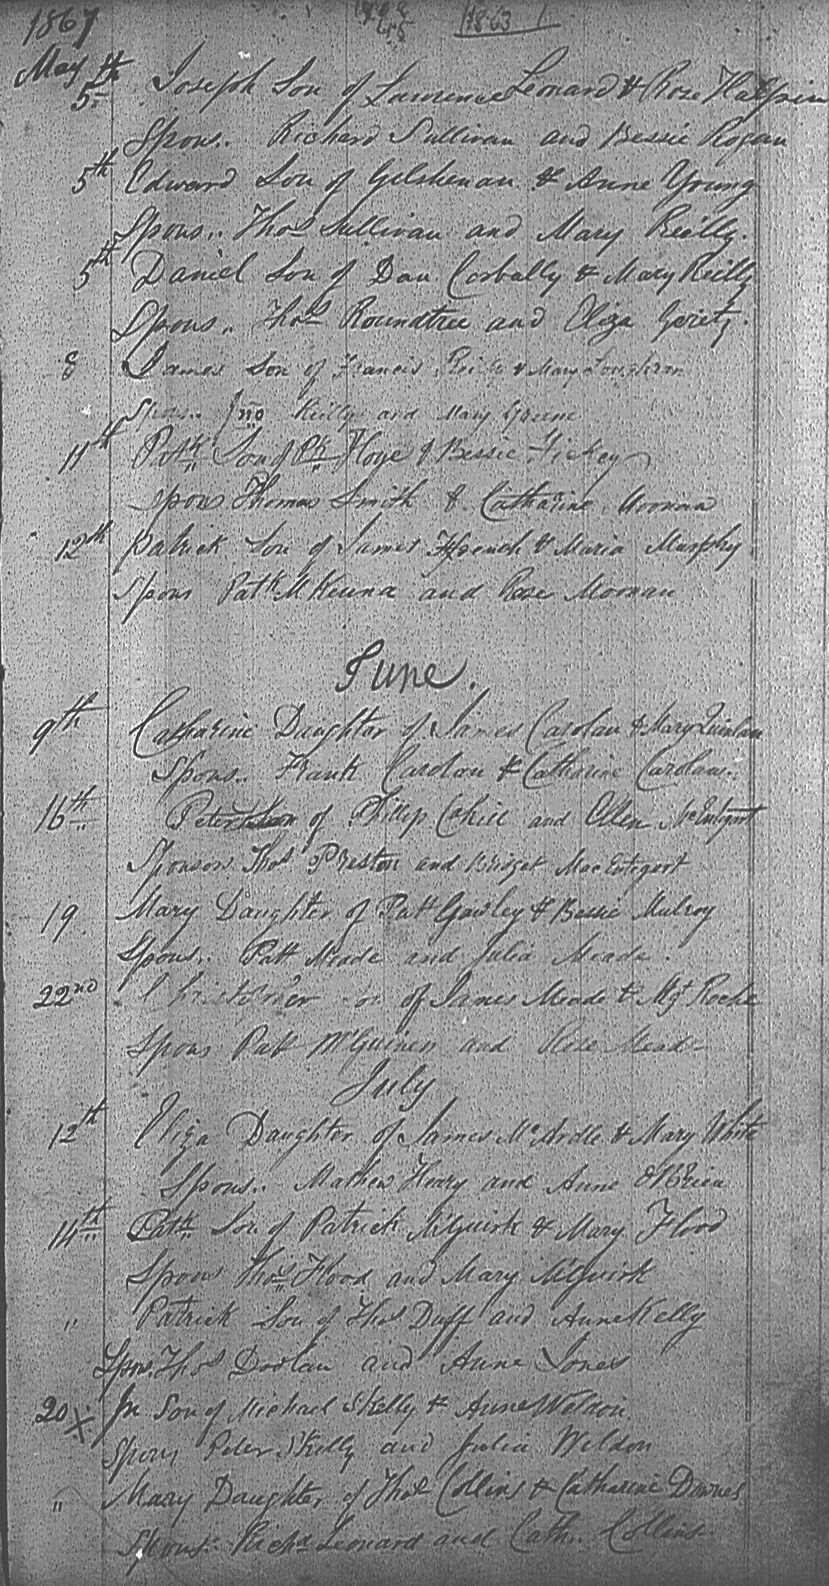 1867
1863
May 5th Joseph Son of Lawrence Leonard & Rose Halpin
Spons.. Richard Sullivan and Bessie Rogan
5th Edward Son of Gilshenan & Anne Young
Spons.. Thos Sullivan and Mary Reilly.
5th Daniel Son of Dan Corbally & Mary Reilly
Spons.. Thos Roundtree and Eliza
8 James Son of Francis & Mary
Spons.. Jno Reilly and Mary Greene
11th Patk Son of Pk Floye & Bessie Hickey
Spons Thomas Smith & Catharine Moonan
12th Patrick Son of James Ffrench & Maria Murphy
Spons Patk McKenna and Rose Moonan
June.
9th Catharine Daughter of James Carolan & Mary Quinlan
Spons.. Frank Carolan & Catharine Carolan..
16th Peter Son of Phillip Cahill and Ellen McEntigart
Sponson Thos Preston and Bridget MacEntigart
19. Mary Daughter of Patt Gowley & Bessie Mulroy
Spons.. Patt Meade and Julia Meade.
22nd Christopher Son of James Meade & Mgt Roche
Spons Patt McGuiness and Rose Meade
July
12th Eliza Daughter of James McArdle & Mary White
Spons.. Mathew Heary and Anne O'Brien
14th Patk Son of Patrick McGuirk & Mary Flood
Spons Thos Flood and Mary McGuirk
" Patrick Son of Thos Duff and Anne Kelly
Spons. Thos Doolan and Anne Jones
20 X Jn Son of Michael Skelly & Anne Weldon
Spons Peter Skelly and Julia Weldon
" Mary Daughter of Thos Collins & Catharine Downes
Spons.. Richd Leonard and Cath.. Collins.